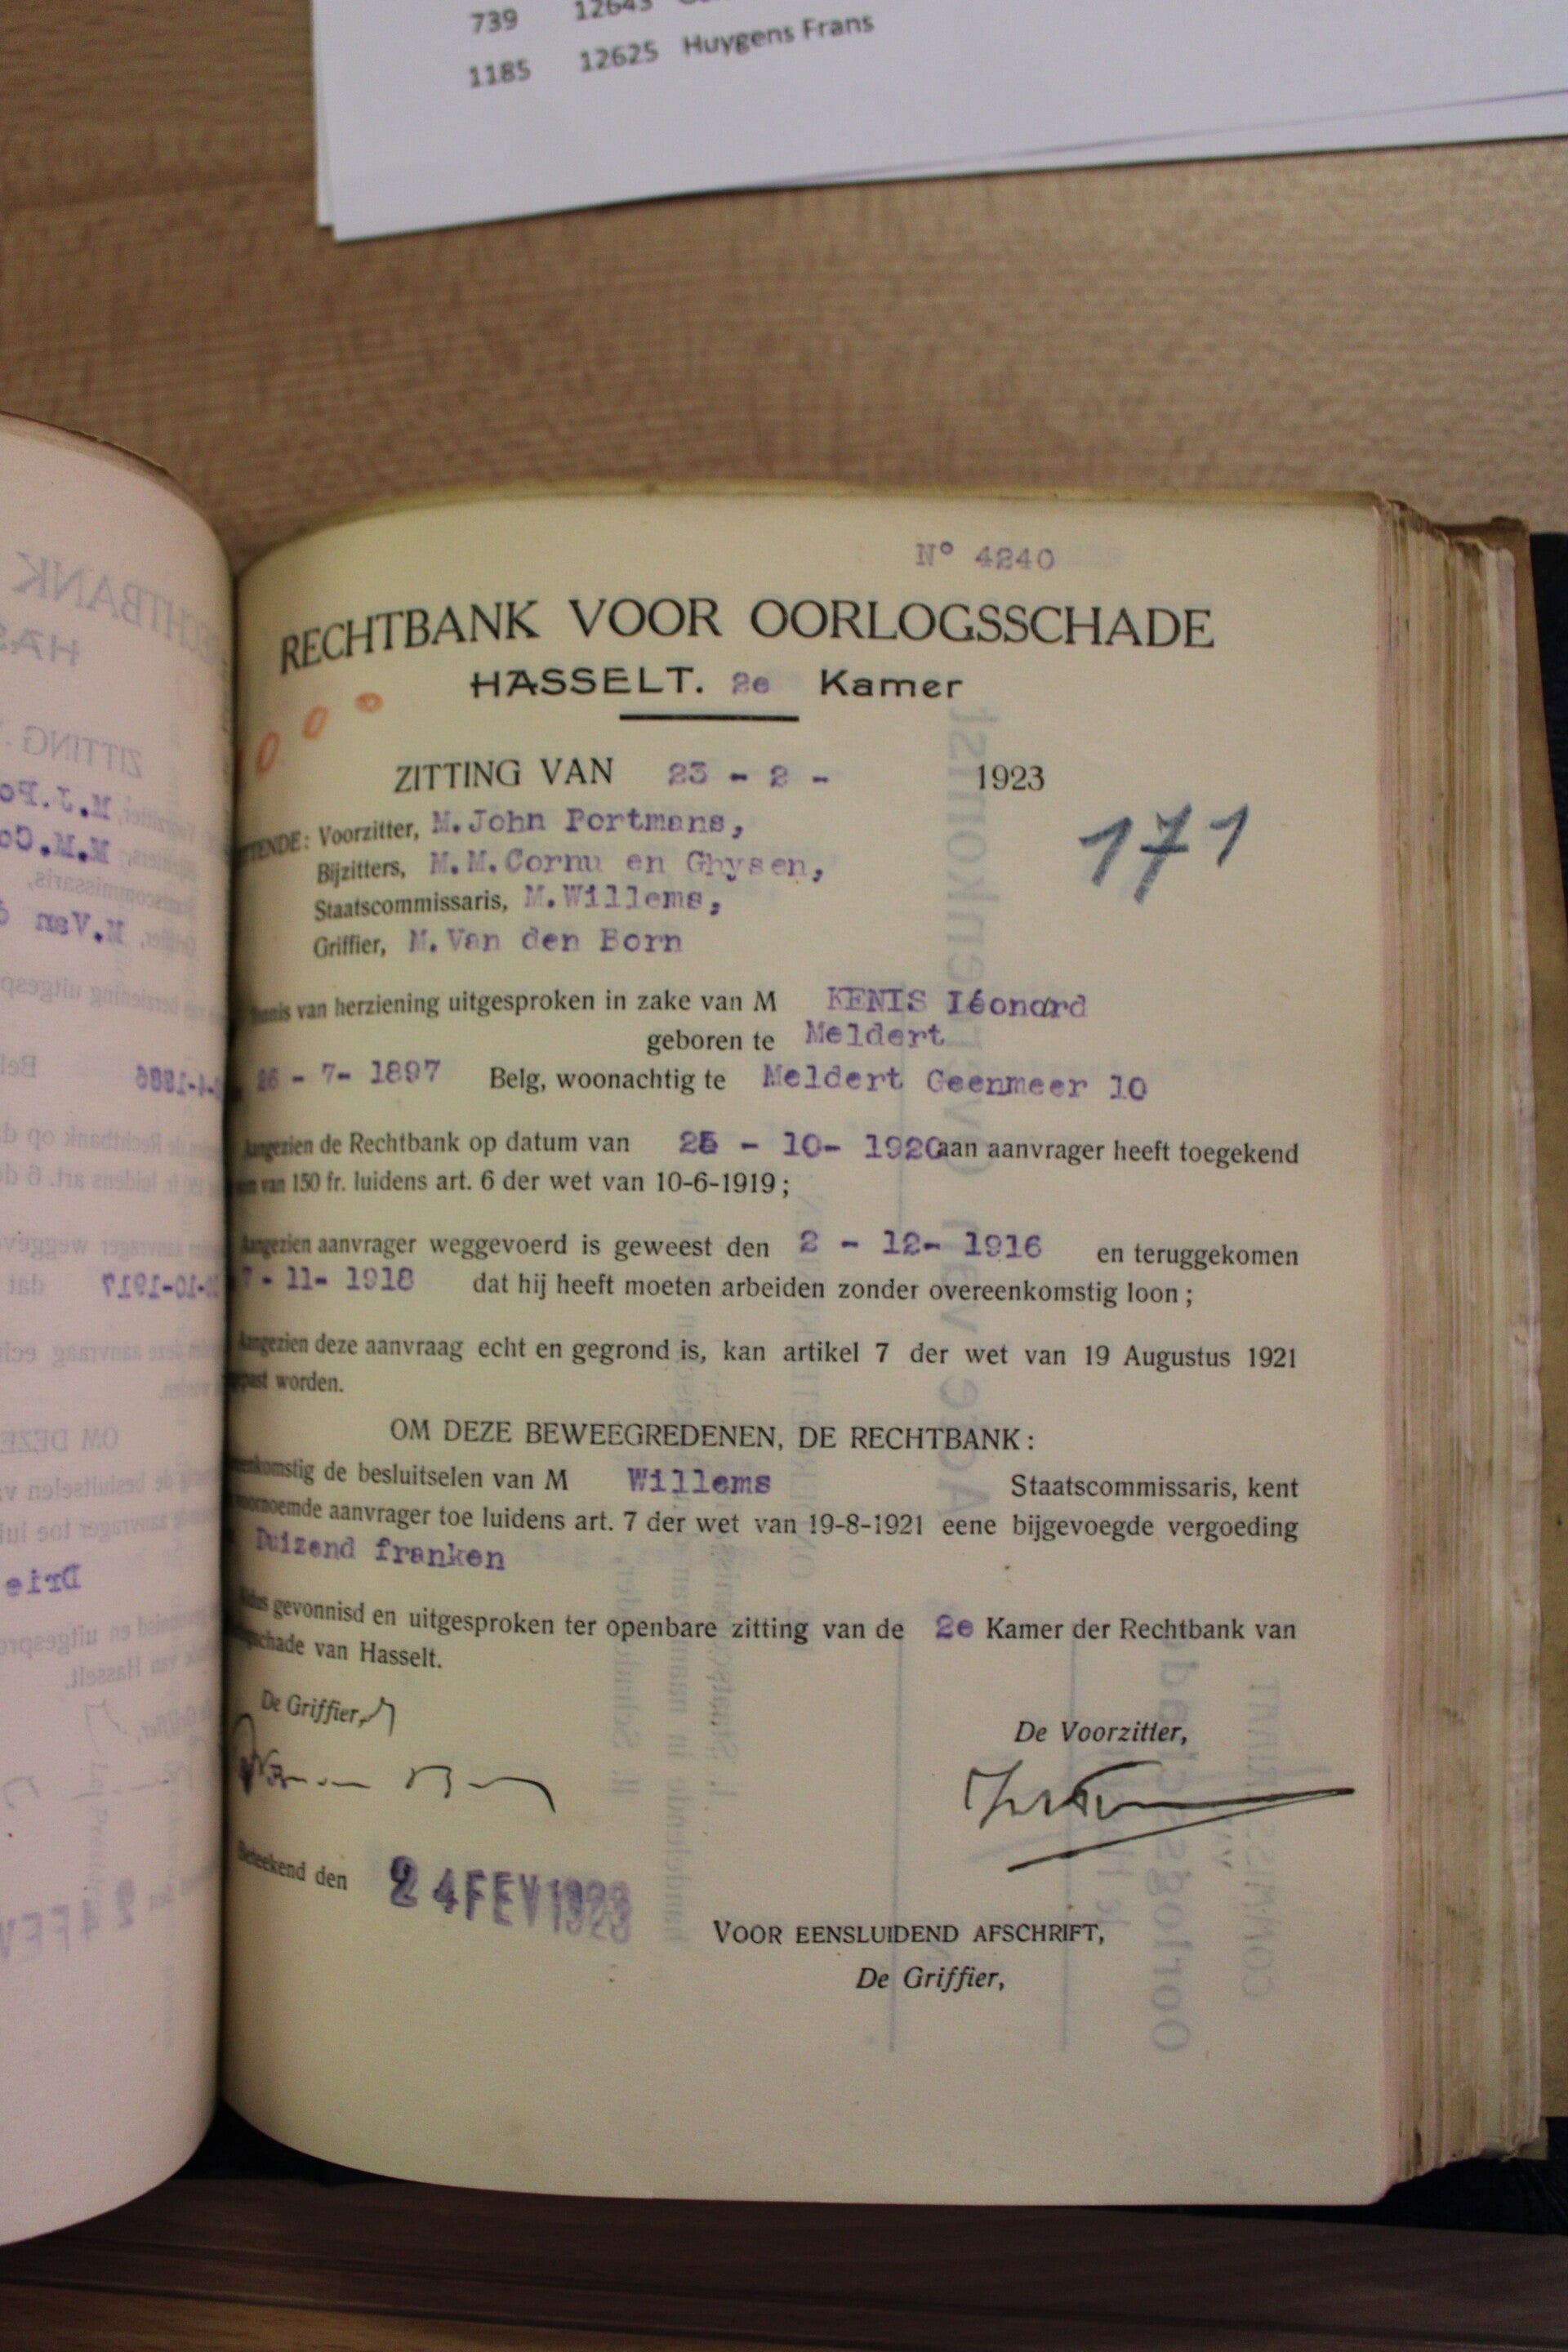 739 12643
1185 12625 Huygens Frans
N° 4240
RECHTBANK VOOR OORLOGSSCHADE
HASSELT. 2e Kamer
000
ZITTING VAN 23 - 2 - 1923
171
TENDE: Voorzitter, M. John Portmans,
Bijzitters, M.M. Cornu en Ghysen,
Staatscommissaris, M. Willems,
Griffier, M. Van den Born
van herziening uitgesproken in zake van M KENIS Léonard
geboren te Meldert
26 - 7- 1897 Belg, woonachtig te Meldert Geenmeer 10
Aangezien de Rechtbank op datum van - 10- 1920 aan aanvrager heeft toegekend
van 150 fr. luidens art. 6 der wet van 10-6-1919;
Aangezien aanvrager weggevoerd is geweest den 2 - 12- 1916 en teruggekomen
7 - 11- 1918 dat hij heeft moeten arbeiden zonder overeenkomstig loon;
Aangezien deze aanvraag echt en gegrond is, kan artikel 7 der wet van 19 Augustus 1921
worden.
OM DEZE BEWEEGREDENEN, DE RECHTBANK:
komstig de besluitselen van M Willems Staatscommissaris, kent
voornoemde aanvrager toe luidens art. 7 der wet van 19-8-1921 eene bijgevoegde vergoeding
Duizend franken
gevonnisd en uitgesproken ter openbare zitting van de 2e Kamer der Rechtbank van
schade van Hasselt.
De Griffier,
De Voorzitter,
Beteekend den 24 FEV 1923
VOOR EENSLUIDEND AFSCHRIFT,
De Griffier,